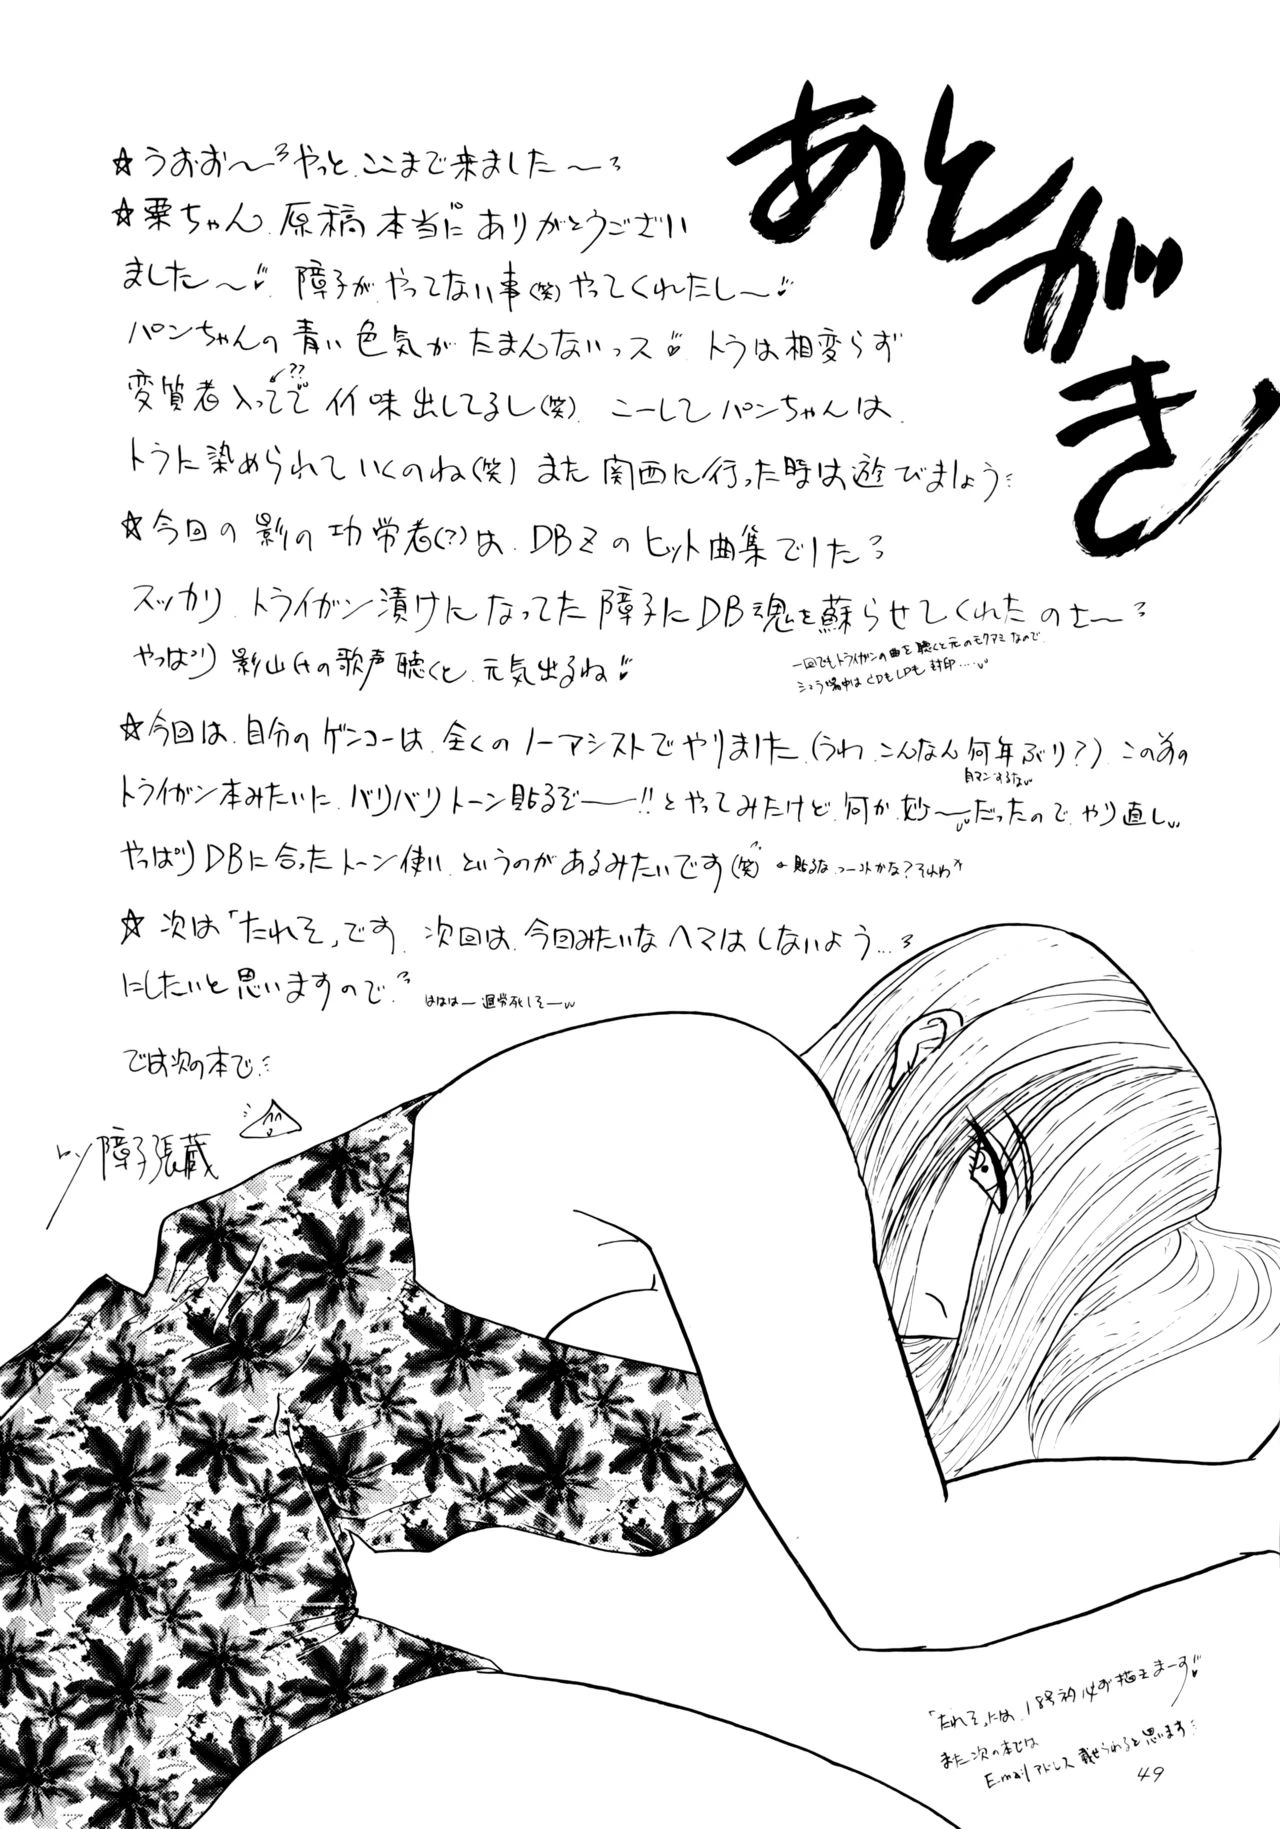 あとがき
☆うおお〜っやっと、ここまで来ました〜っ
☆栗ちゃん、原稿本当にありがとうござい
ました〜♡ 障子がやってない事(笑)やってくれたし〜♡
パンちゃんの青い色気がたまんないっス♡ トラは相変らず
??
変質者入ってでイイ味出してるし(笑) こーしてパンちゃんは、
トラに染められていくのね(笑) また関西に行った時は遊びましょう
☆今回の影の功労者(?)は、DBZのヒット曲集でしたっ
スッカリ、トライガン漬けになってた障子にDB魂を蘇らせてくれたのさ〜っ
やっぱり影山氏の歌声聴くと、元気出るね♡
一回でもトライガンの曲を聴くと元のモクアミなので、
シュラ場中はCDもLPも封印…
☆今回は、自分のゲンコーは、全くのノーアシストでやりました(うわ、こんなん何年ぶり?) この前の
自マンするない
トライガン本みたいに、バリバリトーン貼るぞーー!!とやってみたけど、何か、妙〜だったので、やり直し
やっぱりDBに合ったトーン使い、というのがあるみたいです(笑)
☆次は「たれそ」です、次回は、今回みたいなヘマはしないよう…っ
にしたいと思いますので、っ
はははー 過労死しそー
では次の本で、
障子張蔵
「たれそ」には、18号初必ず描きまーす♡
また次の本では
E-mailアドレス載せられると思います
49